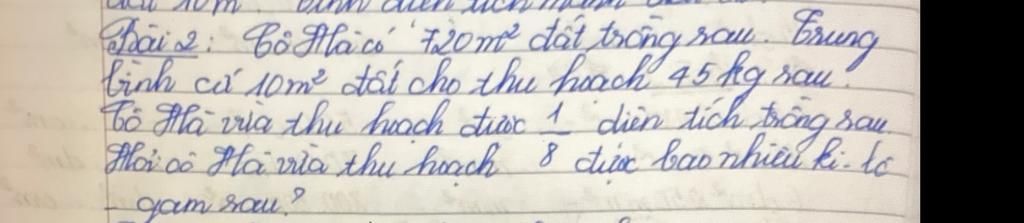 Bài 2: Cô Hà có 720m² đất trồng rau. Trung
bình cứ 10m² đất cho thu hoạch 45 kg rau.
Cô Hà vừa thu hoạch được 1/8 diện tích trồng rau.
Hỏi cô Hà vừa thu hoạch được bao nhiêu ki-lô
-gam rau?